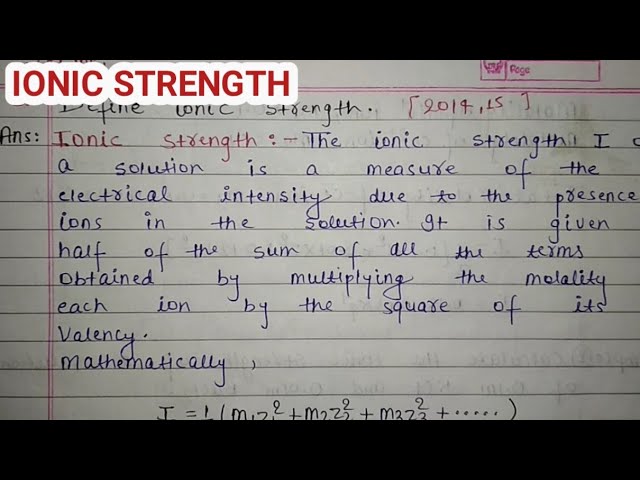 Page
IONIC STRENGTH
Define ionic strength. [2014,15]
Ans: Ionic strength:- The ionic strength, I
a solution is a measure of the
electrical intensity due to the presence
ions in the solution. It is given
half of the sum of all the terms
obtained by multiplying the molality
each ion by the square of its
valency.
Mathematically,
I = 1/2 (m₁z₁² + m₂z₂² + m₃z₃² + .....)